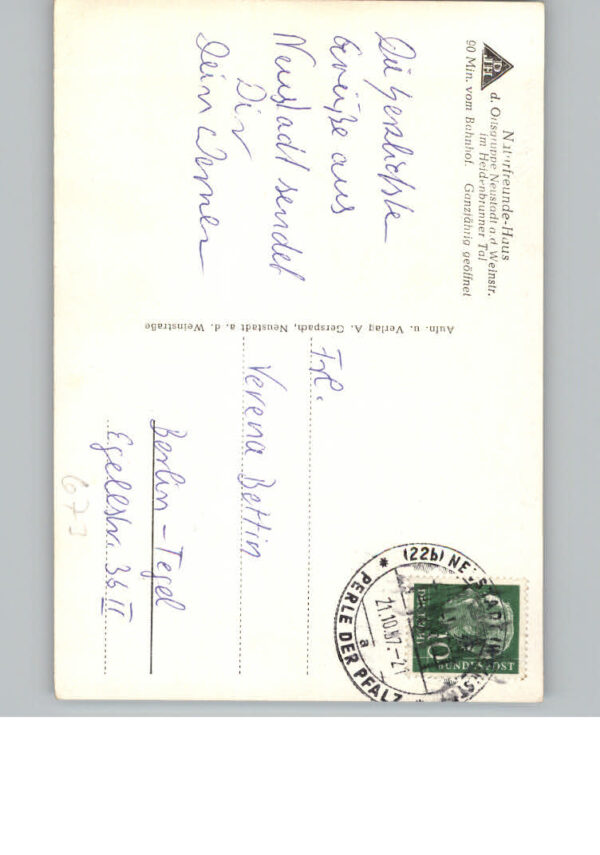 DJH
Naturfreunde-Haus
d. Ortsgruppe Neustadt a. d. Weinstr.
im Heidenbrunner Tal
90 Min. vom Bahnhof. Ganzjährig geöffnet
Die herzlichste
Grüße aus
Neustadt sendet
Dir
Dein Werner
Aufn- u. Verlag A. Gerspach, Neustadt a. d. Weinstraße
Frl.
Verena Bettin
Berlin-Tegel
Egellsstr. 36 II
673
(22b)
21.10.57.-21
a
* PERLE DER PFALZ
10
DEUTSCHE
BUNDESPOST